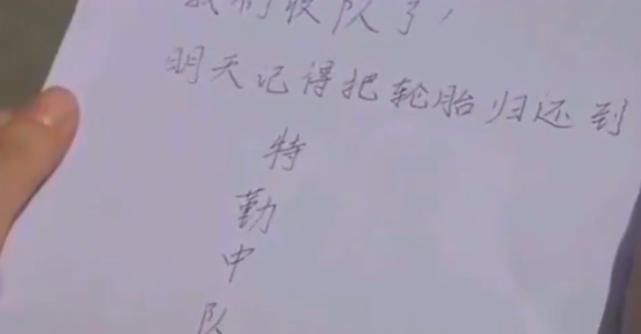 我们收队了，
明天记得把轮胎归还到
特
勤
中
队